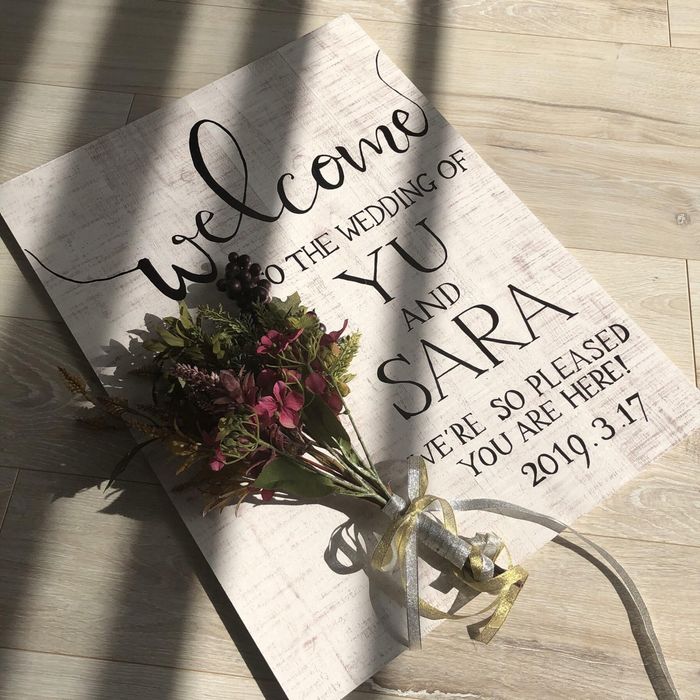 welcome
TO THE WEDDING OF
YU
AND
SARA
WE'RE SO PLEASED
YOU ARE HERE!
2019.3.17